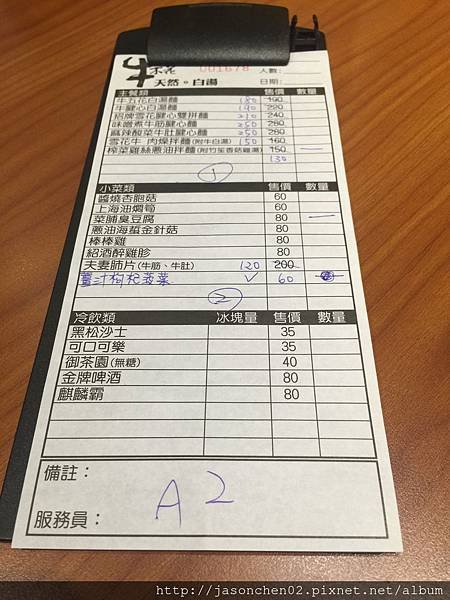 牛 禾花 001678 人數：
天然。白湯 日期：
主餐類 售價 數量
牛五花白湯麵 180 190
牛腱心白湯麵 190 220
招牌雪花腱心雙拼麵 210 240
味噌煮牛筋腱心麵 250 280
麻辣酸菜牛肚腱心麵 250 280
雪花牛 肉燥拌麵(附牛白湯) 150 160
榨菜雞絲蔥油拌麵(附竹笙香菇雞湯) 150 一
130
1
小菜類 售價 數量
醬燒杏胞菇 60
上海油燜筍 60
菜脯臭豆腐 80 一
蔥油海蜇金針菇 80
棒棒雞 80
紹酒醉雞胗 80
夫妻肺片(牛筋、牛肚) 120 200
薑汁枸杞菠菜 ✓ 60
2
冷飲類 冰塊量 售價 數量
黑松沙士 35
可口可樂 35
御茶園(無糖) 40
金牌啤酒 80
麒麟霸 80
備註：
A2
服務員：
http://jasonchen02.pixnet.net/album